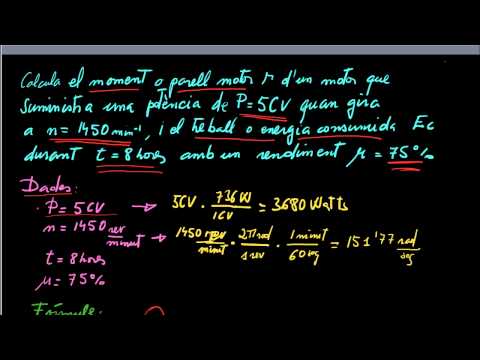 Calcula el moment o parell motor Γ d'un motor que
suministra una potència de P=5CV quan gira
a n=1450 min⁻¹, i el treball o energia consumida Ec
durant t=8 hores amb un rendiment μ=75%
Dades:
P=5CV → 5CV · 736W/1CV = 3680 Watts
n=1450 rev/minut → 1450 rev/minut · 2π rad/1 rev · 1 minut/60 seg = 151'77 rad/seg
t=8 hores
μ=75%
Fórmules: